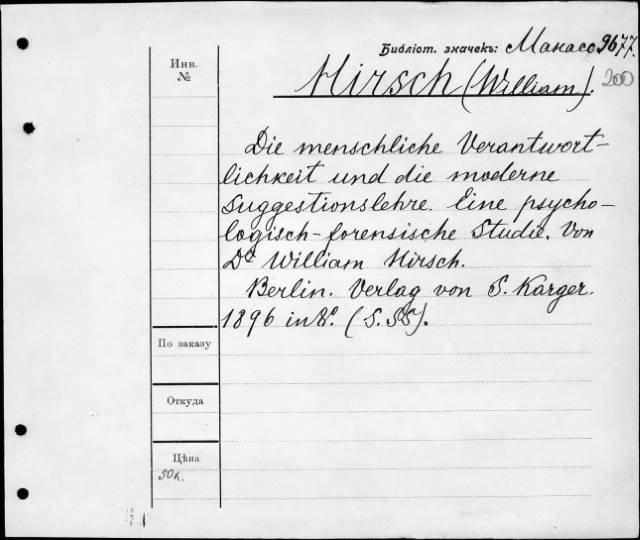 Библіот. значекъ: Манасс 9677.
200
Инв.
№
Hirsch (William).
Die menschliche Verantwort-
lichkeit und die moderne
Suggestionslehre. Eine psycho-
logisch-forensische Studie. Von
Dr William Hirsch.
Berlin. Verlag von S. Karger.
1896 in 8º. (S. 55).
По заказу
Откуда
Цѣна
50 к.